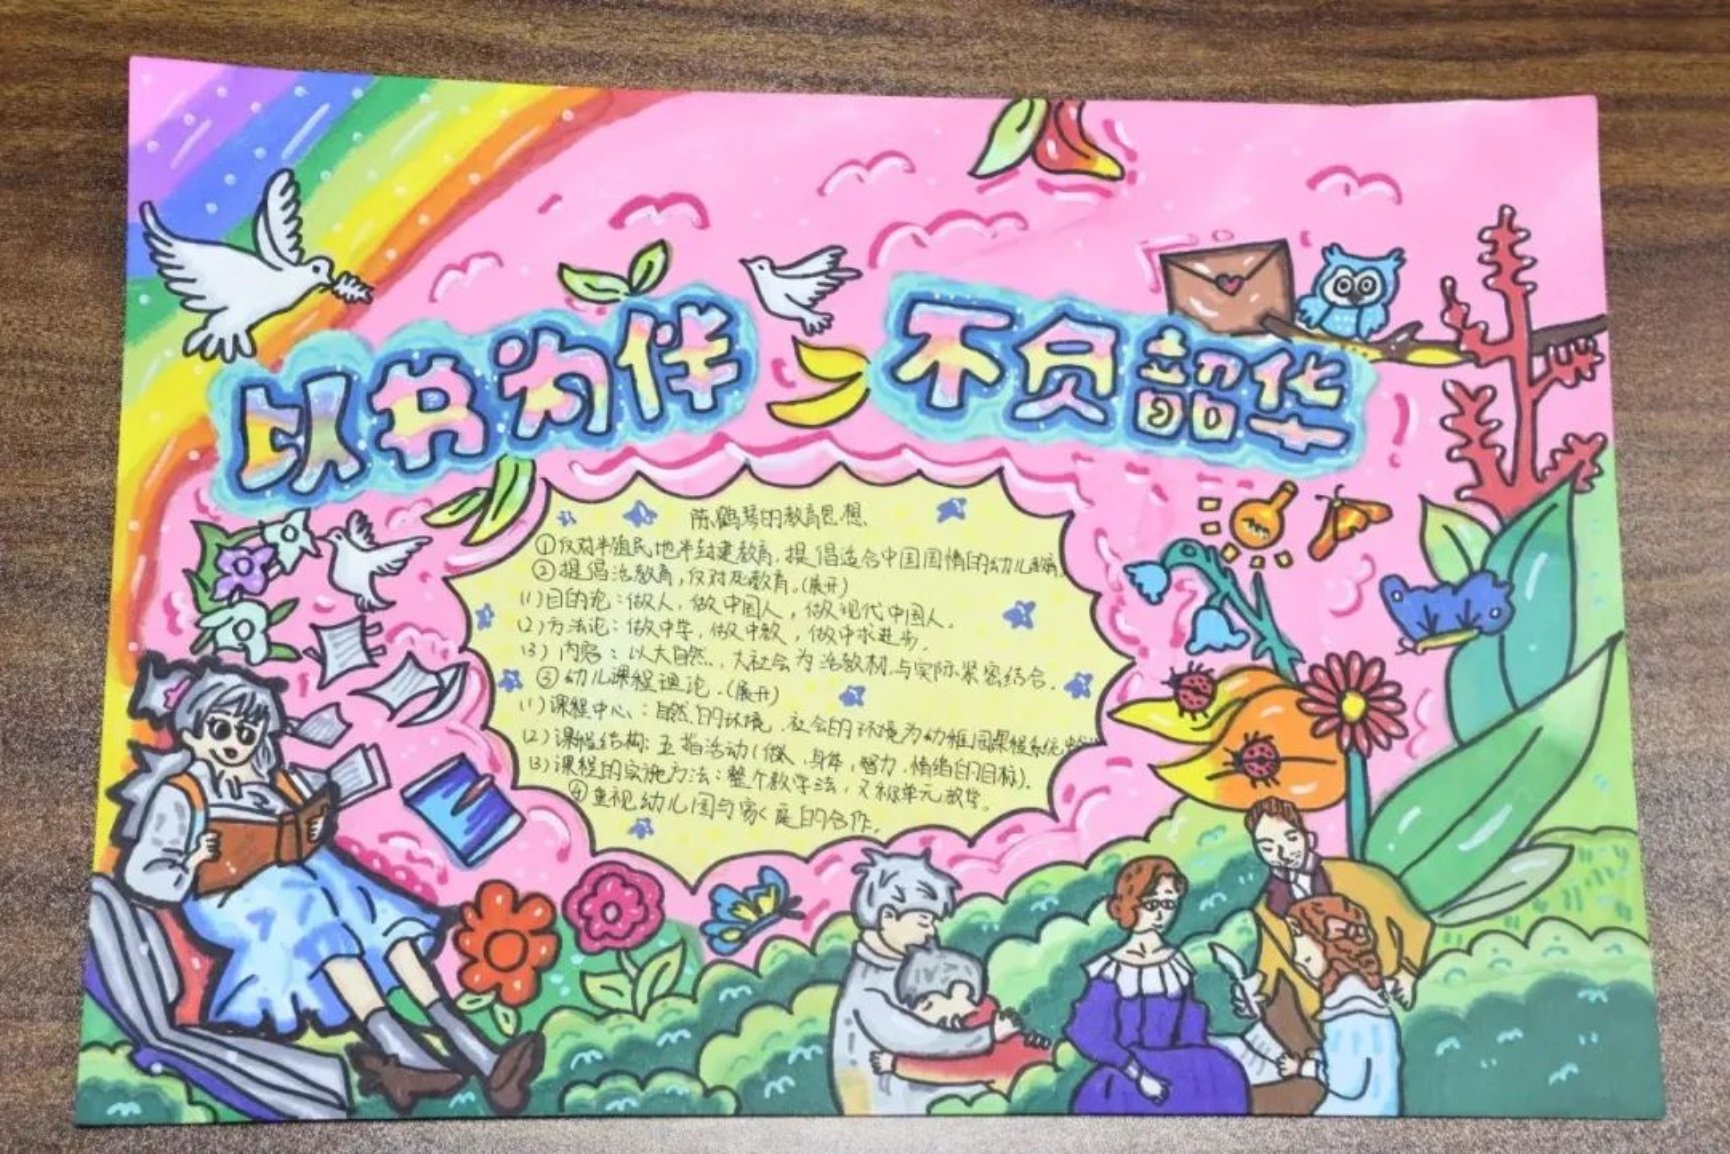 以书为伴、不负韶华
陈鹤琴的教育思想
①反对半殖民地半封建教育,提倡适合中国国情的幼儿教育
②提倡活教育,反对死教育。(展开)
(1)目的论:做人,做中国人,做现代中国人。
(2)方法论:做中学,做中教,做中求进步。
(3)内容:以大自然、大社会为活教材,与实际紧密结合。
③幼儿课程理论.(展开)
(1)课程中心:自然的环境,社会的环境为幼稚园课程系统
(2)课程结构:五指活动(做人,身体,智力,情绪的目标).
(3)课程的实施方法:整个教学法,又称单元教学。
④重视幼儿园与家庭的合作.